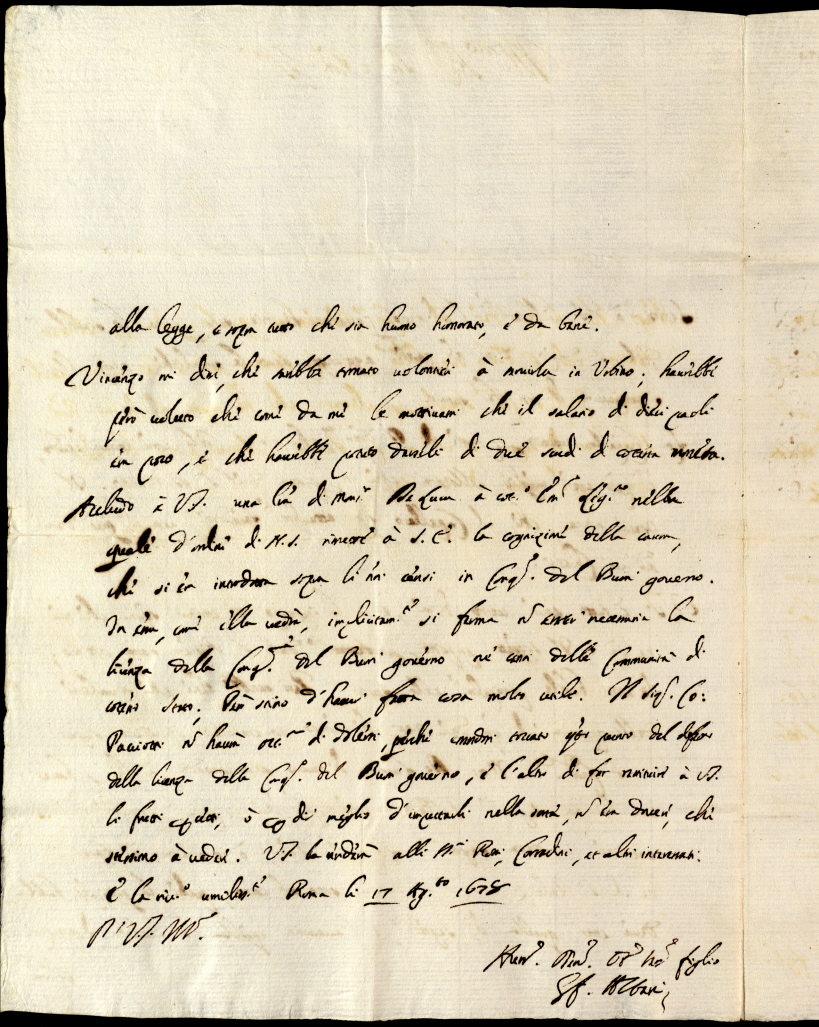 alla legge, e sopra tutto che sia huomo honorato, e da bene.
Vincenzo mi dice, che sarebbe tornato volontieri à servirla in Urbino; haverebbe
però voluto che come da me le motivassi che il salario di dieci paoli
era poco, e che haverebbe potuto darseli di due scudi di cotesta moneta.
Accludo à V.S. una lra di Monsr De Luca à cot.o Em.o Leg.to nella
quale d'ordine di N.S. rimette à S.E. la cognizione della causa,
che si era introdotta sopra li censi in Cong.e del Buon governo.
In essa, come ella vedrà, implicitam.te si ferma nō esser necessaria la
licenza della Cong.ne del Buon governo ne casi delle Communità di
cotesto Stato. Però stimo d'haver fatto cosa molto utile. Il Sig.r Co:
Paciotti nō haverà occ.ne di dolersi, perche essendosi toccato q̃sto punto del difetto
della licenza della Cong.e del Buon governo, e l'altro di far restituire à V.S.
li frutti, ò di meglio d'imputarli nella sorte, nō era dovere, che
stessimo à vedere. V.S. la renderà alli SS.ri Rossi, Corradini, et altri interessati.
E la riv.o umiliss.te Roma li 17 Ag.to 1678
D. V.S. Ill.e
Aff.mo Dev.mo Obb.mo figlio
Gf. Albani